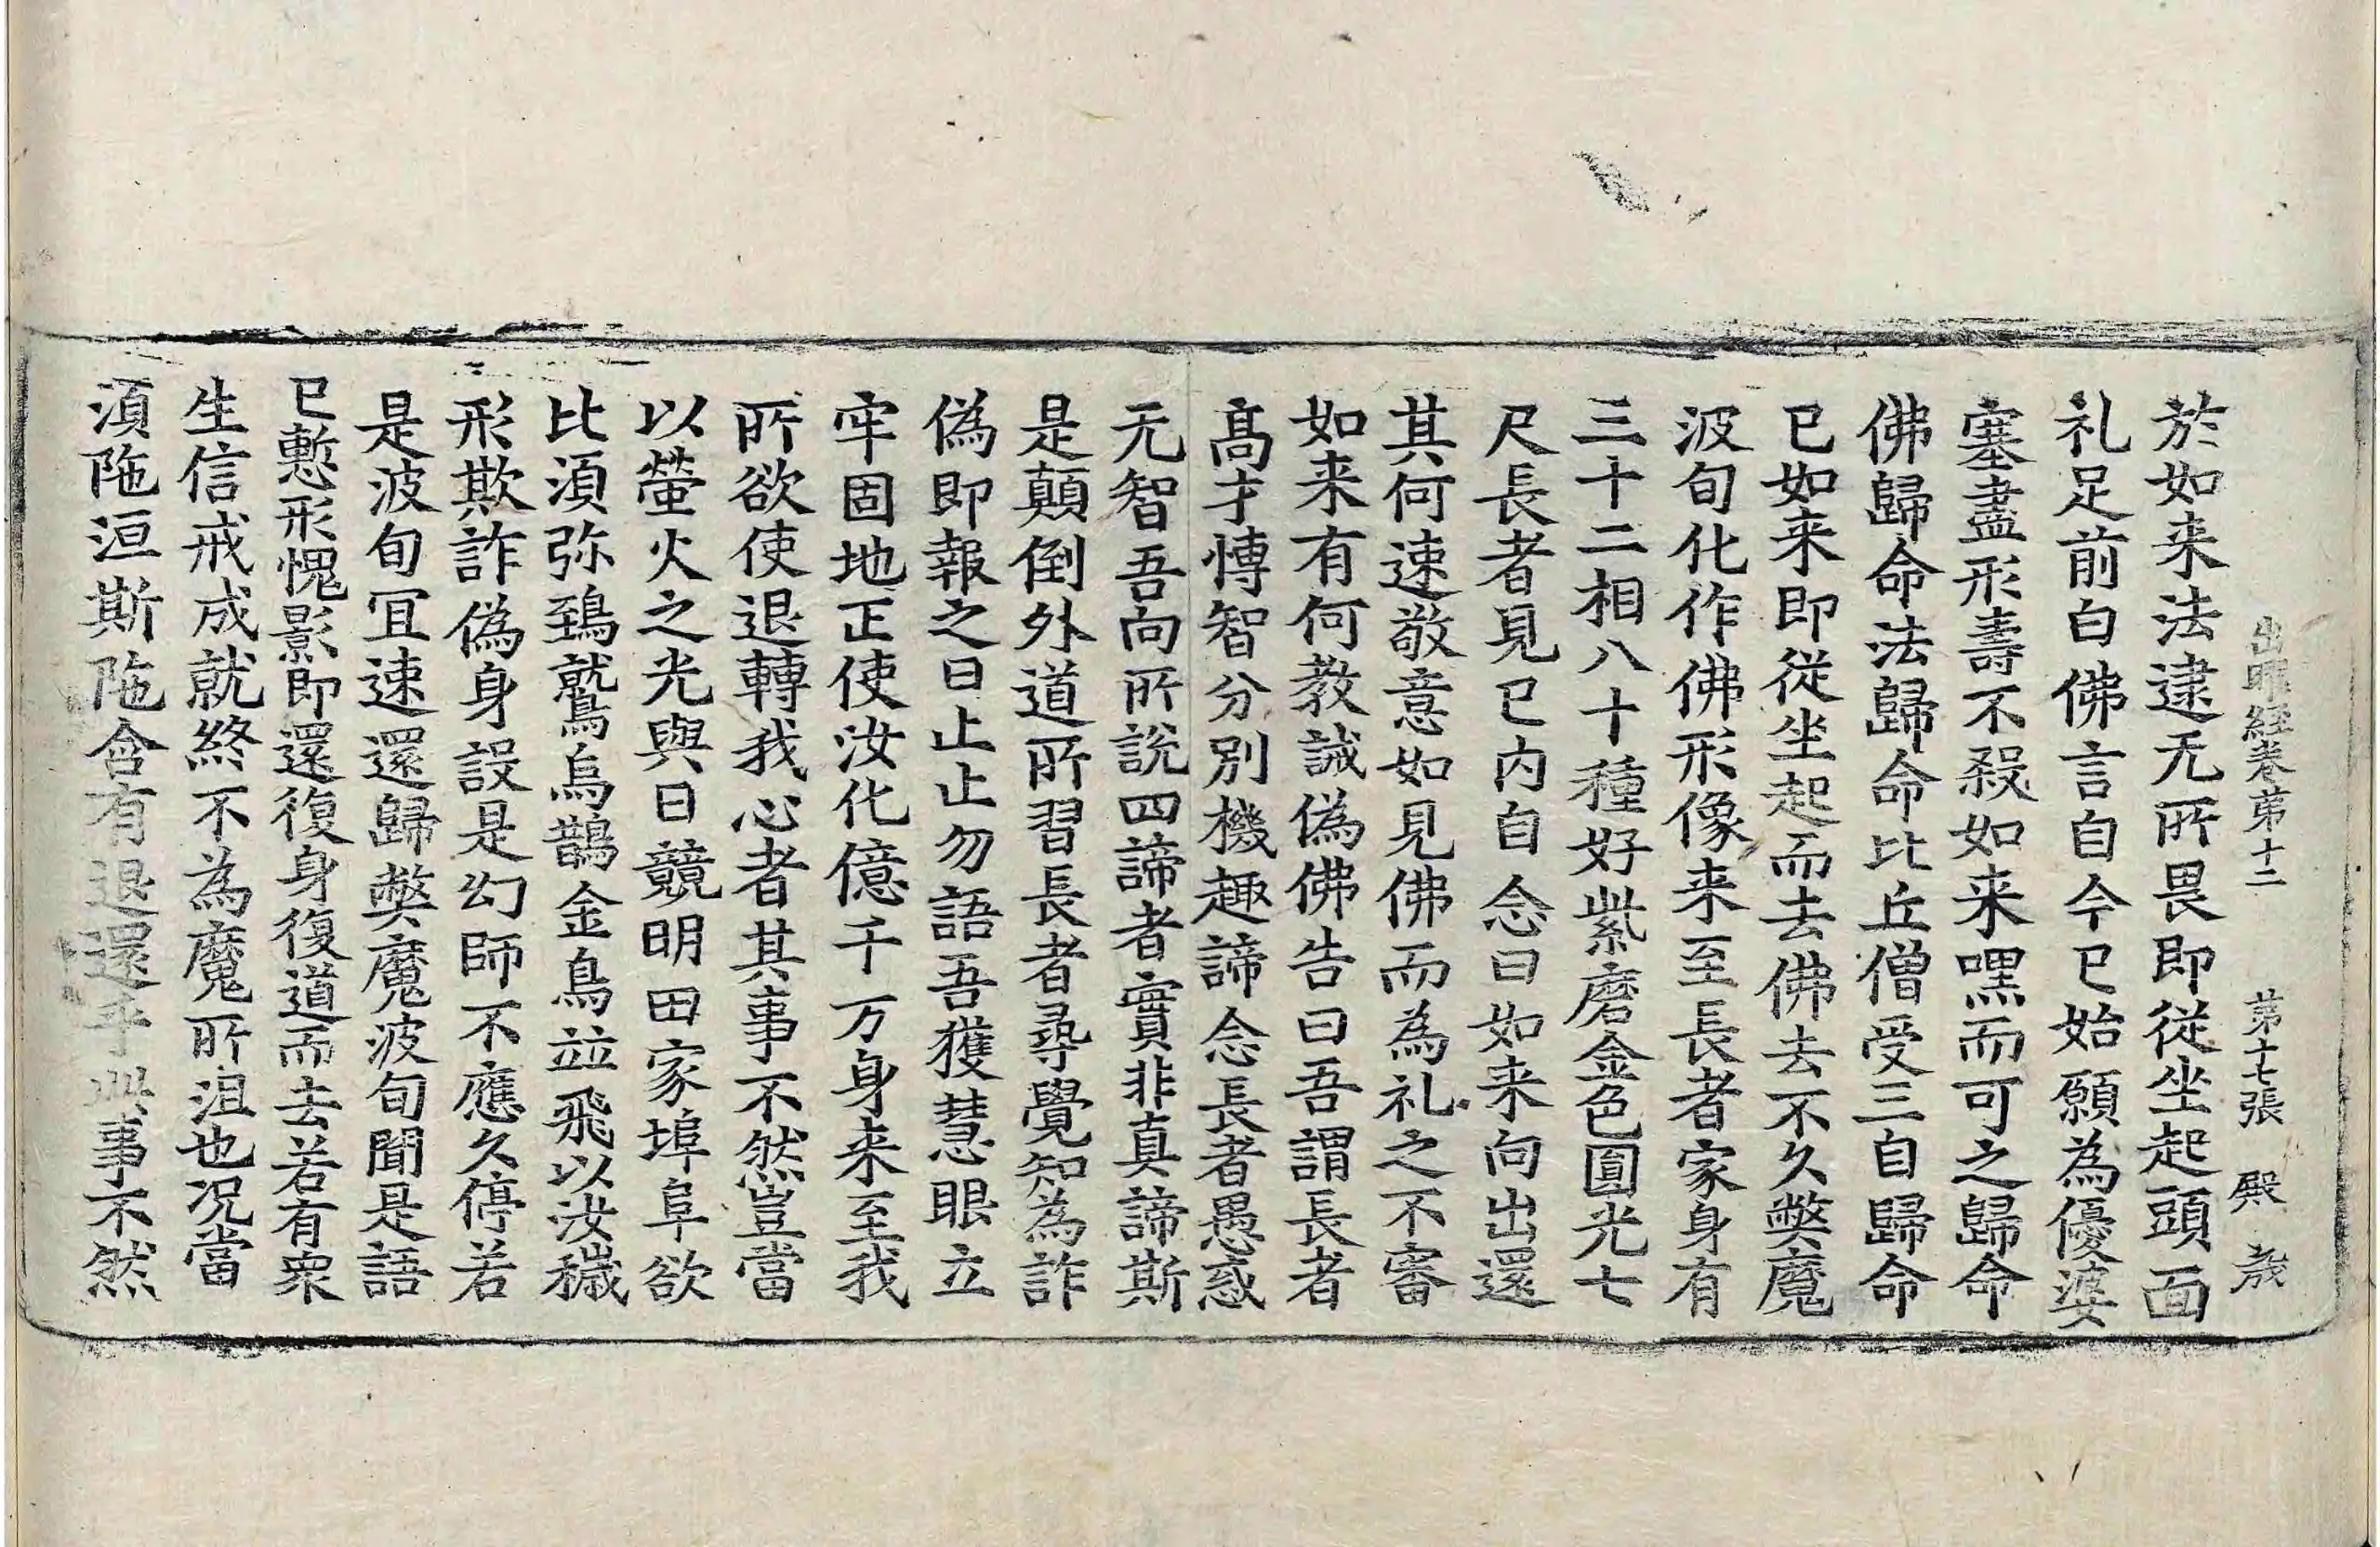 出曜経巻第十二　第十七張　殿
於如来法逮无所畏即從坐起頭面
礼足前白佛言自今已始願為優婆
塞盡形壽不殺如来嘿而可之歸命
佛歸命法歸命比丘僧受三自歸命
已如来即從坐起而去佛去不久弊魔
波旬化作佛形像来至長者家身有
三十二相八十種好紫磨金色圓光七
尺長者見已内自念曰如来向出還
其何速敬意如見佛而為礼之不審
如来有何教誡偽佛告曰吾謂長者
髙才愽智分別機趣諦念長者愚惑
无智吾向所說四諦者實非真諦斯
是顛倒外道所習長者尋覺知為詐
偽即報之曰止止勿語吾獲慧眼立
牢固地正使汝化億千万身来至我
所欲使退轉我心者其事不然豈當
以螢火之光與日競明田家埠阜欲
比湏弥鵄鷲烏鵲金鳥並飛以汝穢
形欺詐偽身設是幻師不應久停若
是波旬冝速還歸弊魔波旬聞是語
已慙形愧影即還復身復道而去若有衆
生信戒成就終不為魔所沮也况當
湏陁洹斯陁含有退還乎此事不然